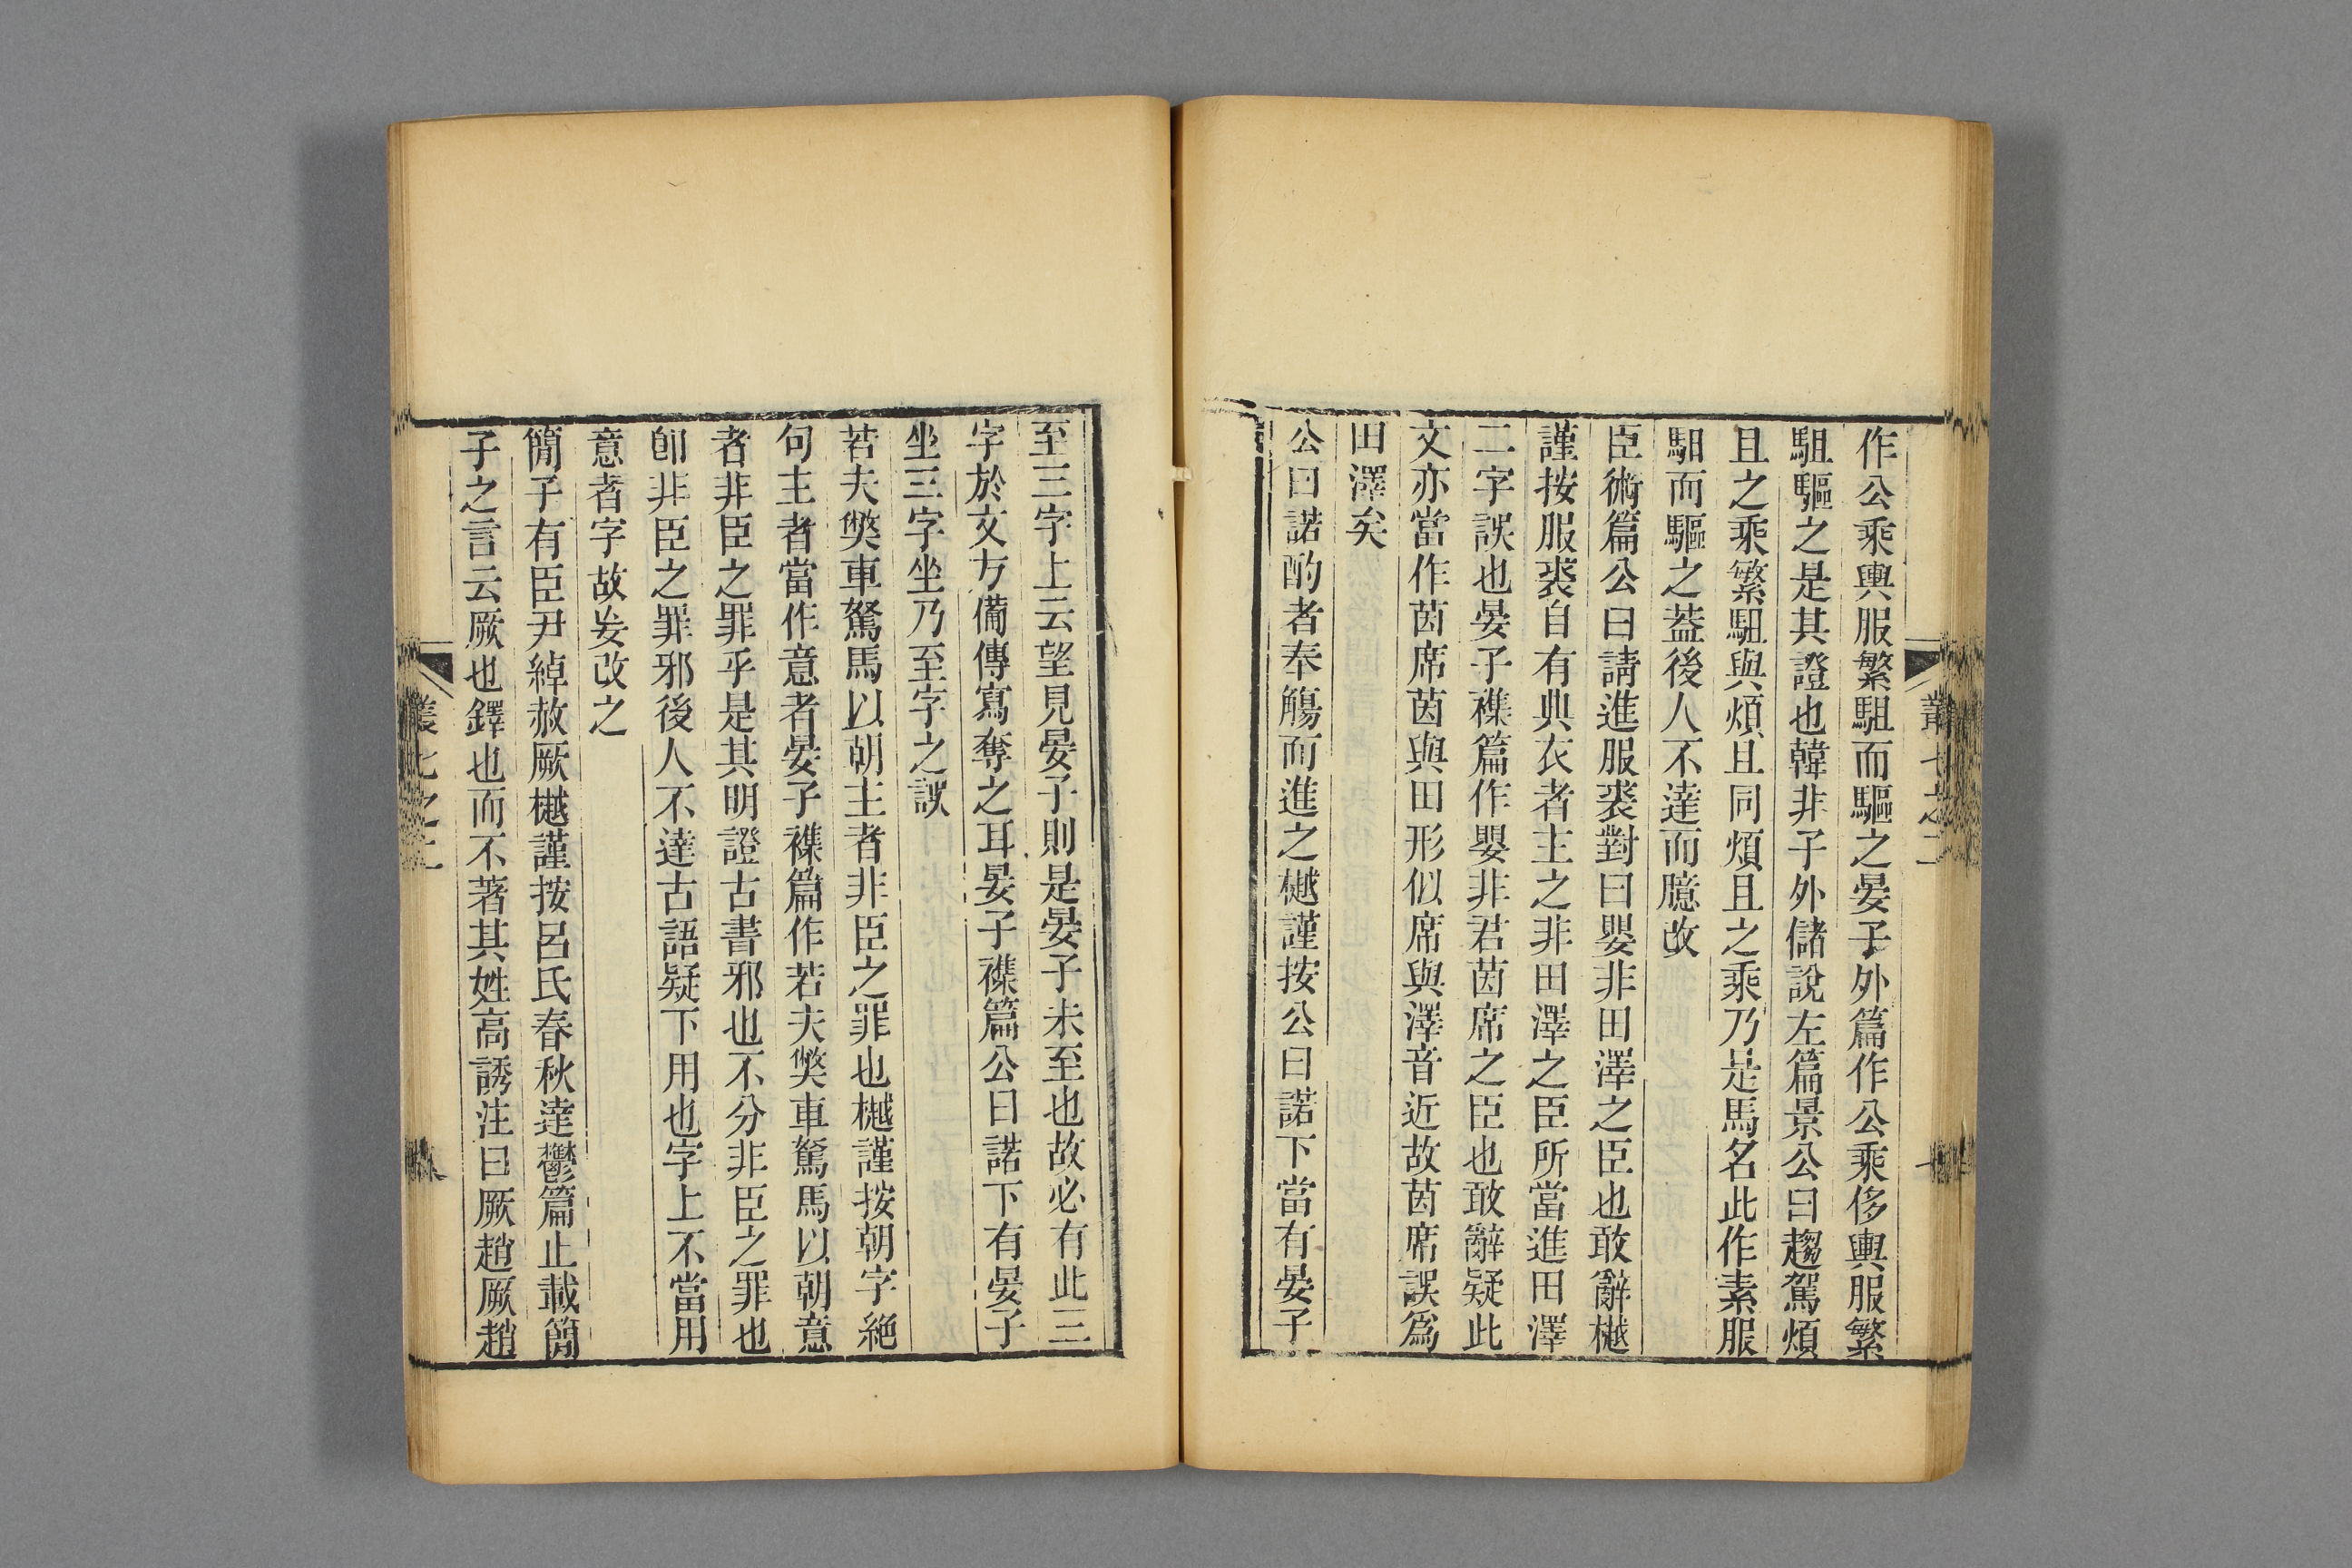 作公乘輿服繁駔而驅之晏子外篇作公乘侈輿服繁
駔驅之是其證也韓非子外儲說左篇景公曰趨駕煩
且之乘繁駔與煩且同煩且之乘乃是馬名此作素服
駔而驅之葢後人不達而臆改
臣術篇公曰請進服裘對曰嬰非田澤之臣也敢辭樾
謹按服裘自有典衣者主之非田澤之臣所當進田澤
二字誤也晏子襍篇作嬰非君茵席之臣也敢辭疑此
文亦當作茵席茵與田形似席與澤音近故茵席誤爲
田澤矣
公曰諾酌者奉觴而進之樾謹按公曰諾下當有晏子
至三字上云望見晏子則是晏子未至也故必有此三
字於文方備傳寫奪之耳晏子襍篇公曰諾下有晏子
坐三字坐乃至字之誤
若夫獘車駑馬以朝主者非臣之罪也樾謹按朝字絕
句主者當作意者晏子襍篇作若夫獘車駑馬以朝意
者非臣之罪乎是其明證古書邪也不分非臣之罪也
卽非臣之罪邪後人不達古語疑下用也字上不當用
意者字故妄改之
簡子有臣尹綽赦厥樾謹按呂氏春秋達鬱篇止載簡
子之言云厥也鐸也而不著其姓高誘注曰厥趙厥趙
叢七之二